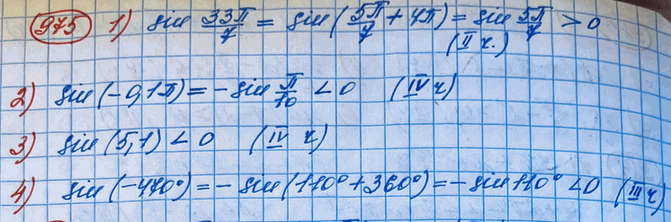 975 1) sin 33π/7 = sin (5π/7 + 4π) = sin 5π/7 > 0
(II ч.)
2) sin (-0,1π) = - sin π/10 < 0 (IV ч)
3) sin (5,1) < 0 (IV ч)
4) sin (-470°) = - sin (110° + 360°) = - sin 110° < 0 (III ч)